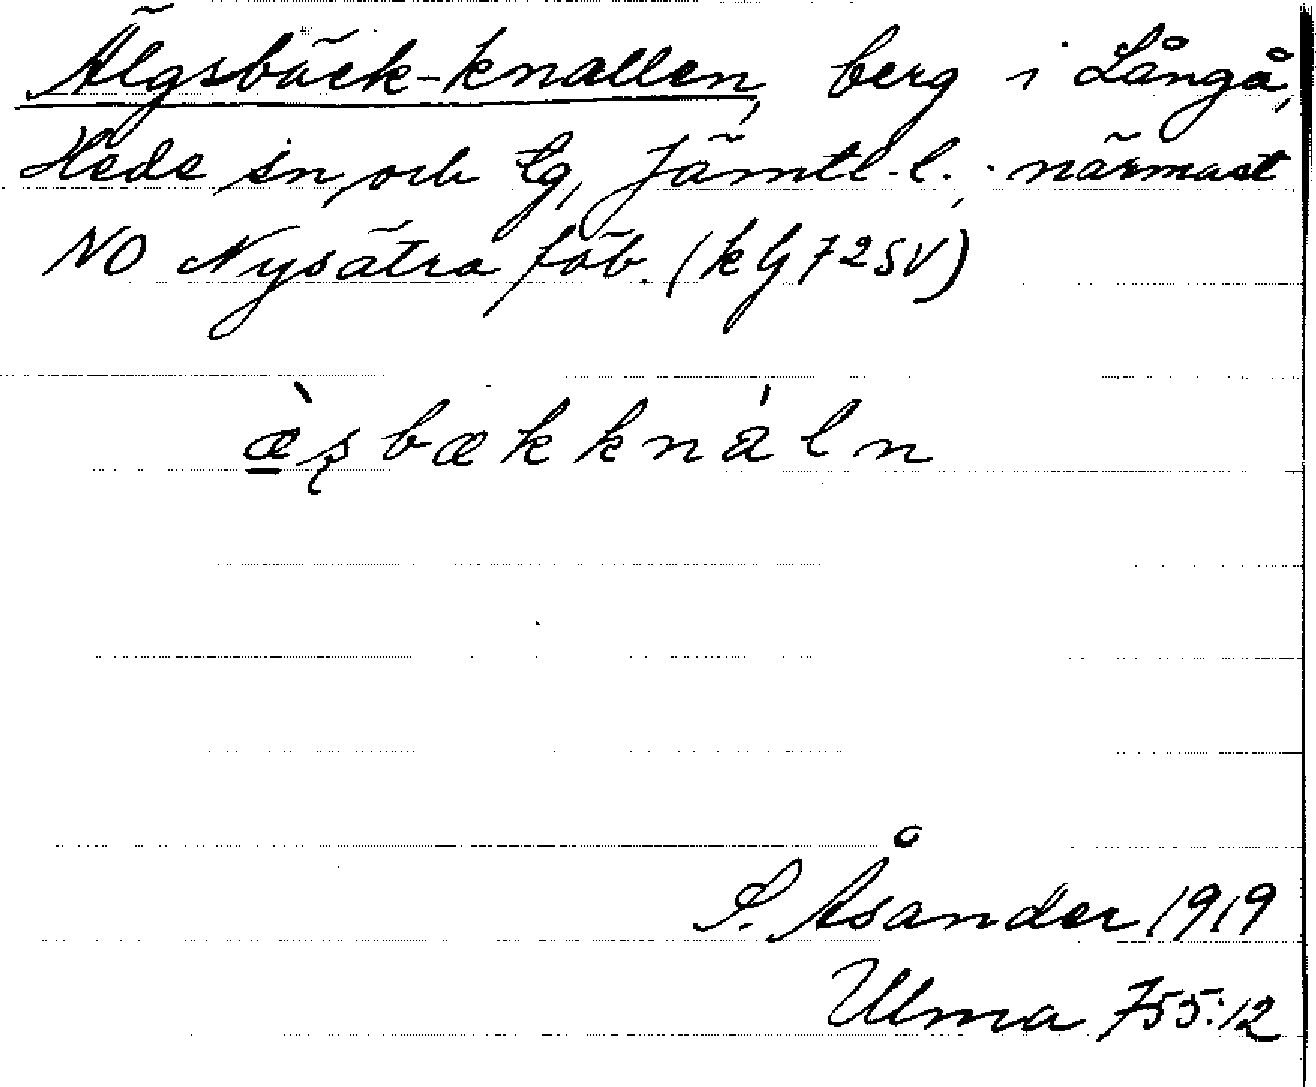 Älgsbäck-knallen, berg i Långå,
Hede sn och tg, Jämtl. l., närmast
NO Nysätra fäb. (kbl 72SV)
æ̀ʂbækknáln
S. Åsander 1919
Ulma 755:12